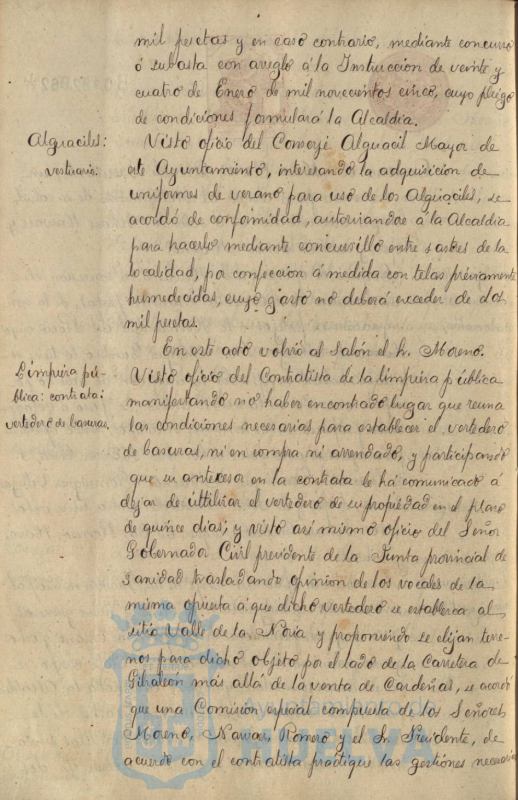 mil pesetas y en caso contrario, mediante concurso
ó subasta con arreglo á la Instruccion de veinte y
cuatro de Enero de mil novecientos cinco, cuyo pliego
de condiciones formulará la Alcaldia.
Alguaciles:
vestuario:
Visto oficio del Conserje Alguacil Mayor de
este Ayuntamiento, interesando la adquisicion de
uniformes de verano para uso de los Alguaciles, se
acordó de conformidad, autorizandose á la Alcaldia
para hacerlo mediante concursillo entre sastres de la
localidad, por confeccion á medida con telas préviamente
humedecidas, cuyo gasto no deberá exceder de dos
mil pesetas.
En este acto volvió al salón el Sr. Moreno.
Limpieza pú-
blica: contrata:
vertedero de basuras.
Visto oficio del Contratista de la limpieza pública
manifestando no haber encontrado lugar que reuna
las condiciones necesarias para establecer el vertedero
de basuras, ni en compra ni arrendado, y participando
que su antecesor en la contrata le há comunicado á
dejar de uttilizar el vertedero de su propiedad en el plazo
de quince dias; y visto asi mismo oficio del Señor
Gobernador Civil presidente de la Junta provincial de
Sanidad trasladando opinion de los vocales de la
misma opuesta á que dicho vertedero se establezca al
sitio Valle de la Noria y proponiendo se elijan terre-
nos para dicho objeto por el lado de la Carretera de
Gibraleón más allá de la venta de Cardeñas, se acordó
que una Comision especial compuesta de los Señores
Moreno, Narvaez, Romero y el Sr Presidente, de
acuerdo con el contratista practique las gestiones necesarias
Ayuntamiento de
HUELVA